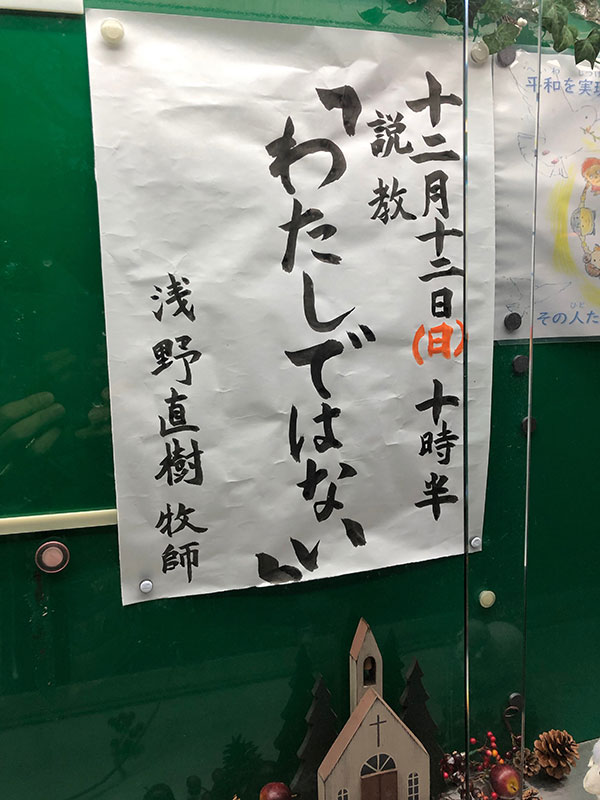 十二月十二日(日) 十時半
説教
「わたしではない」
浅野直樹 牧師
平和を実現
その人た
ひと